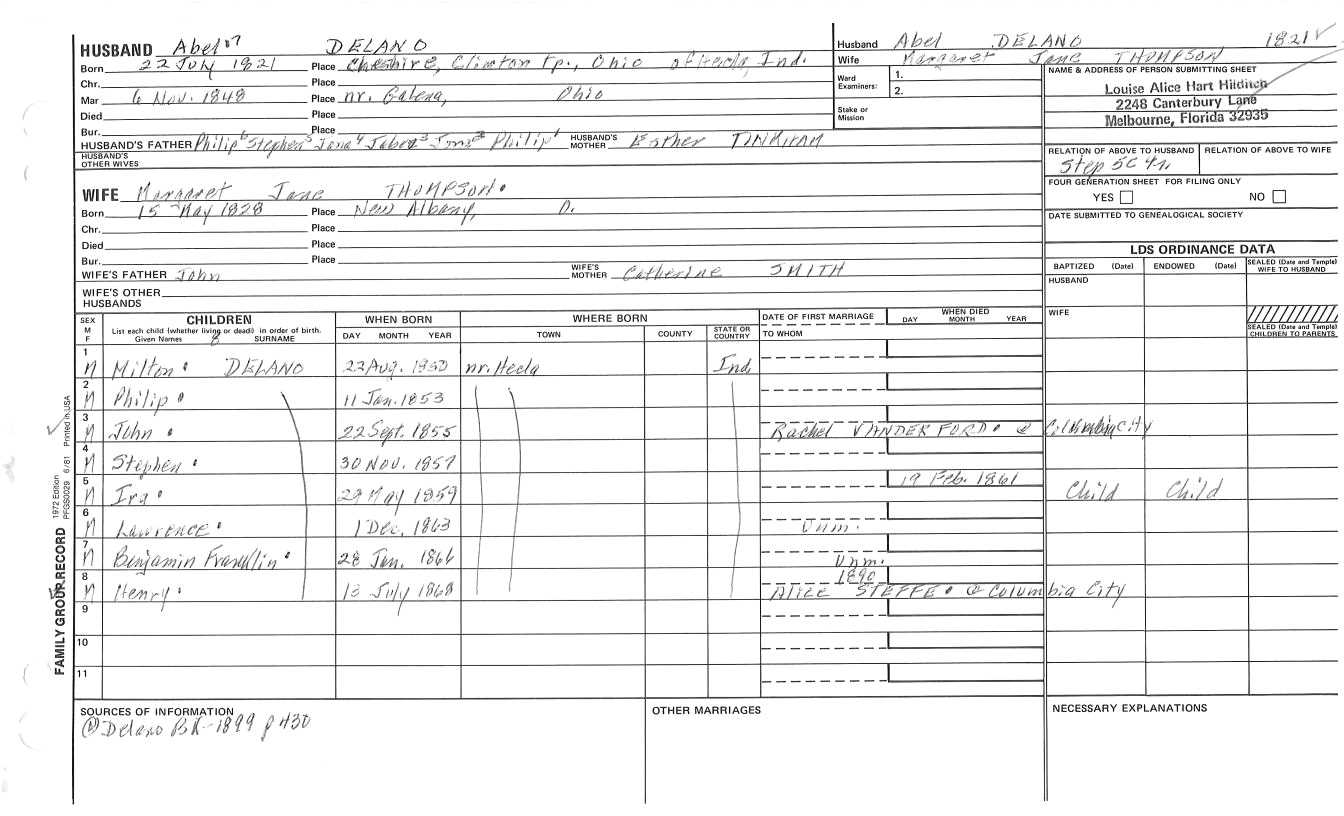 HUSBAND Abel⁷ DELANO
Born 22 July 1821 Place Cheshire, Clinton Tp., Ohio of Hecla, Ind.
Chr. Place
Mar 6 Nov. 1848 Place nr. Galena, Ohio
Died Place
Bur. Place
HUSBAND'S FATHER Philip⁶ Stephen⁵ HUSBAND'S MOTHER Esther TINKHAM
HUSBAND'S OTHER WIVES
Husband Abel DELANO 1821
Wife Margaret Jane THOMPSON
Ward Examiners: 1.
2.
Stake or Mission
NAME & ADDRESS OF PERSON SUBMITTING SHEET
Louise Alice Hart Hilditch
2248 Canterbury Lane
Melbourne, Florida 32935
RELATION OF ABOVE TO HUSBAND RELATION OF ABOVE TO WIFE
FOUR GENERATION SHEET FOR FILING ONLY
YES NO
DATE SUBMITTED TO GENEALOGICAL SOCIETY
WIFE Margaret Jane THOMPSON
Born 15 May 1828 Place New Albany, O.
Chr. Place
Died Place
Bur. Place
WIFE'S FATHER John WIFE'S MOTHER Catherine SMITH
WIFE'S OTHER HUSBANDS
LDS ORDINANCE DATA
BAPTIZED (Date) ENDOWED (Date) SEALED (Date and Temple) WIFE TO HUSBAND
HUSBAND
WIFE
SEALED (Date and Temple) CHILDREN TO PARENTS
SEX M F CHILDREN WHEN BORN WHERE BORN DATE OF FIRST MARRIAGE WHEN DIED
List each child (whether living or dead) in order of birth. DAY MONTH YEAR TOWN COUNTY STATE OR COUNTRY TO WHOM DAY MONTH YEAR
Given Names 8 SURNAME
1 M Milton DELANO 22 Aug. 1850 nr. Hecla Ind.
2 M Philip 11 Jan. 1853
3 M John 22 Sept. 1855 Rachel VANDERFORD @ City
4 M Stephen 30 Nov. 1857
5 M Ira 29 May 1859 19 Feb. 1861 Child Child
6 M Lawrence 1 Dec. 1863 Unm.
7 M Benjamin Franklin 28 Jan. 1866 Unm.
8 M Henry 13 July 1868 1890 Alice STEFFE @ Columbia City
9
10
11
SOURCES OF INFORMATION OTHER MARRIAGES NECESSARY EXPLANATIONS
Delano BK-1899 p 430
FAMILY GROUP RECORD 1972 Edition PFGS0029 6/81 Printed in USA